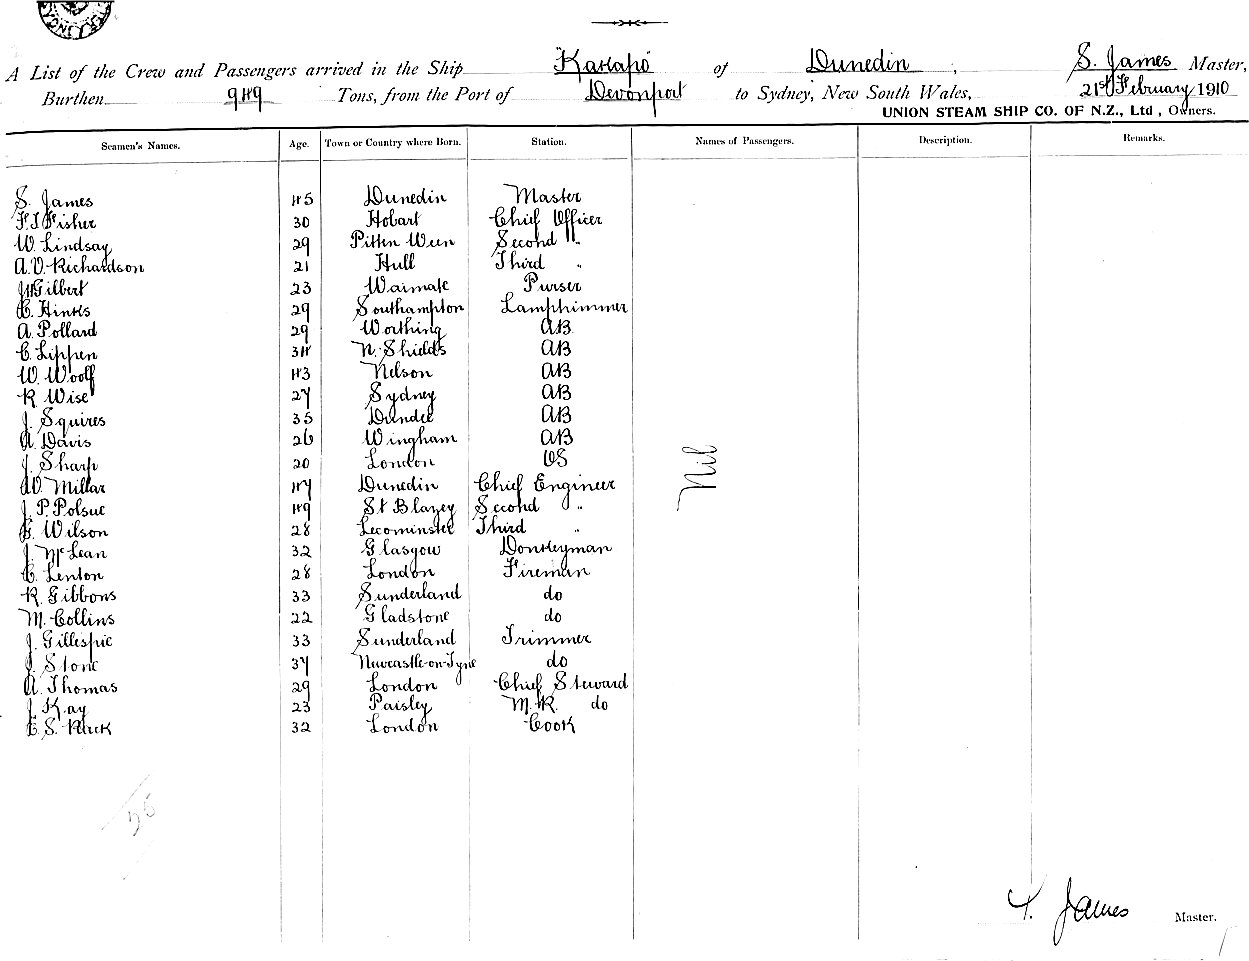 SYDNEY
A List of the Crew and Passengers arrived in the Ship "Kakapo" of Dunedin, S. James Master,
Burthen 949 Tons, from the Port of Devonport to Sydney, New South Wales, 21st February 1910
UNION STEAM SHIP CO. OF N.Z., Ltd., Owners.
Seamen's Names. Age. Town or Country where Born. Station. Names of Passengers. Description. Remarks.
S. James 45 Dunedin Master
Fisher 30 Hobart Chief Officer
W. Lindsay 29 Pitten Ween Second "
A. V. Richardson 21 Hull Third "
Gilbert 23 Waimate Purser
C. Hinks 29 Southampton Lamptrimmer
A. Pollard 29 Worthing AB
C. Lippen 34 N. Shields AB
W. Woolf 43 Nelson AB
R Wise 27 Sydney AB
J. Squires 35 Dundee AB
A. Davis 26 Wingham AB
J. Sharp 20 London OS
Nil
W. Millar 47 Dunedin Chief Engineer
J. P. Polsue 49 St Blazey Second "
Wilson 28 Leominster Third "
J. McLean 32 Glasgow Donkeyman
C. Lenton 28 London Fireman
R. Gibbons 33 Sunderland do
M. Collins 22 Gladstone do
J. Gillespie 33 Sunderland Trimmer
J. Stone 37 Newcastle-on-Tyne do
A. Thomas 29 London Chief Steward
J. Kay 23 Paisley M. R. do
S. Ruck 32 London Cook
25
James Master.